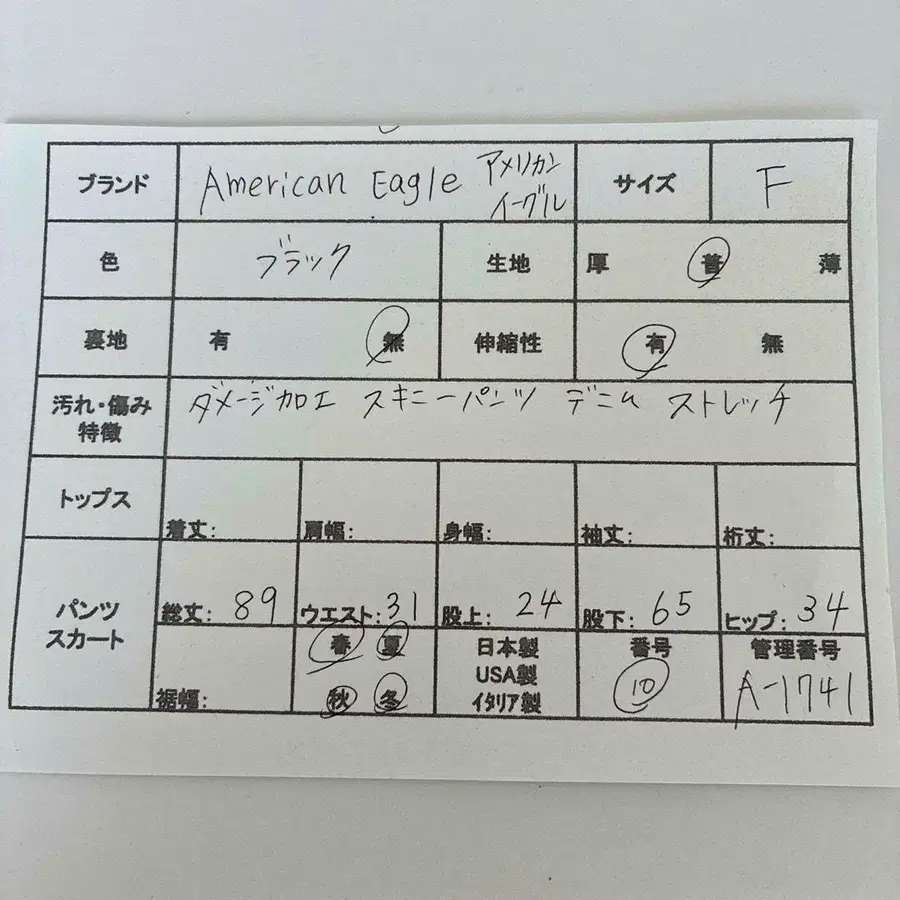 ブランド American Eagle アメリカン イーグル サイズ F
色 ブラック 生地 厚 普 薄
裏地 有 無 伸縮性 有 無
汚れ・傷み 特徴 ダメージ加工 スキニーパンツ デニム ストレッチ
トップス 着丈: 肩幅: 身幅: 袖丈: 裄丈:
パンツ スカート 総丈: 89 ウエスト: 31 股上: 24 股下: 65 ヒップ: 34
裾幅: 春 夏 秋 冬 日本製 USA製 イタリア製 番号 10 管理番号 A-1741